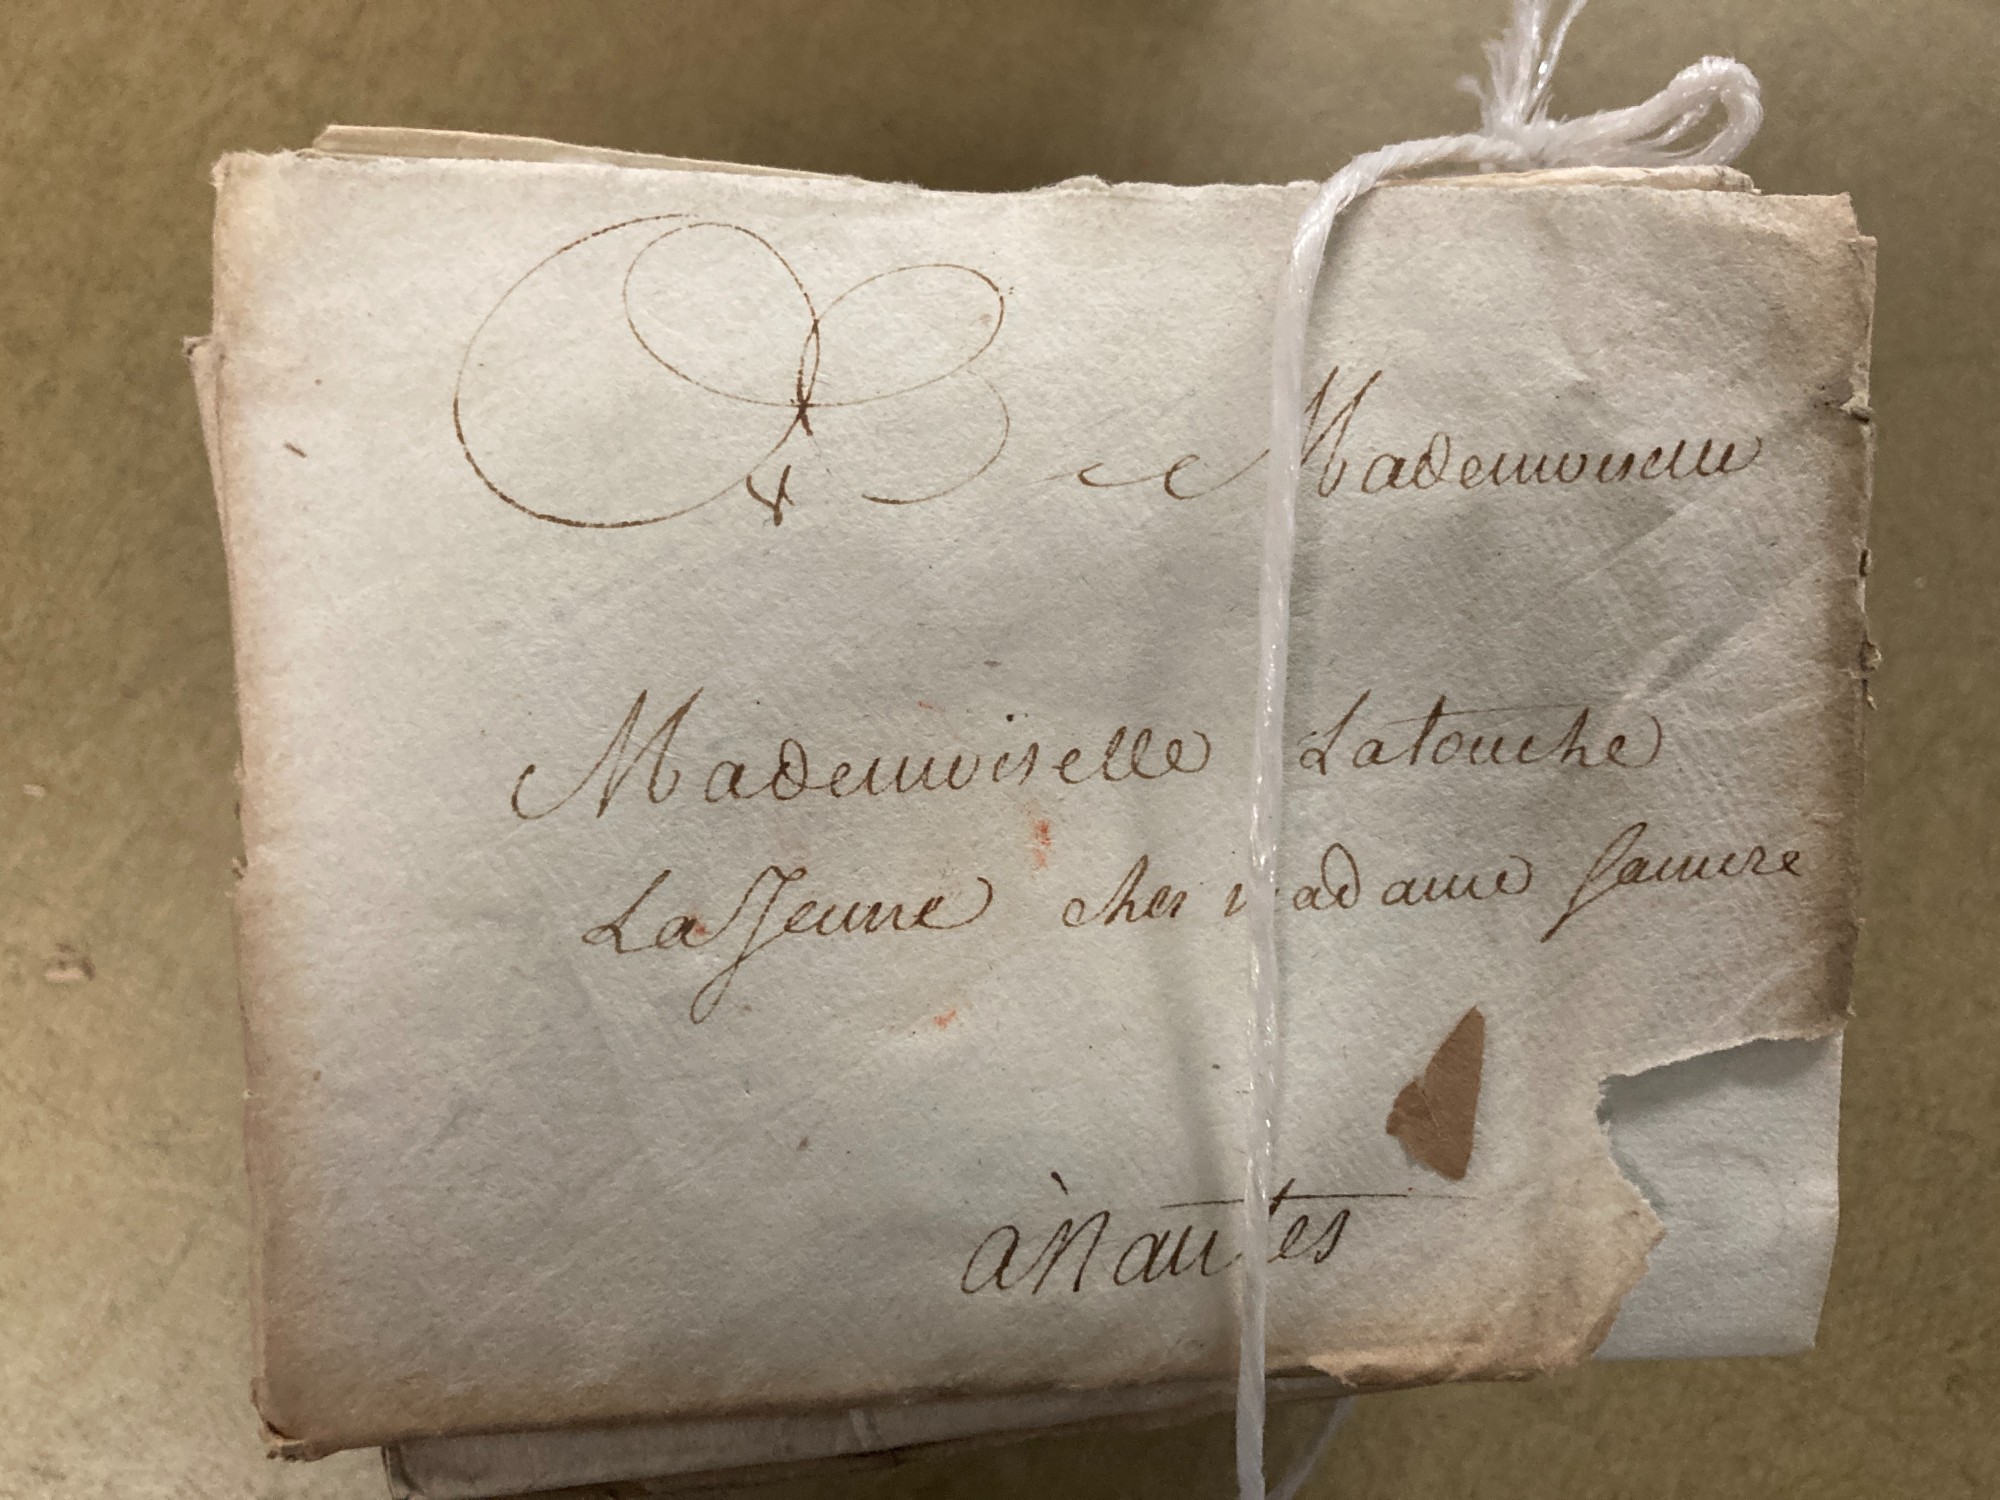 Mademoiselle
Mademoiselle Latouche
La Jeune ches madame
à Nantes